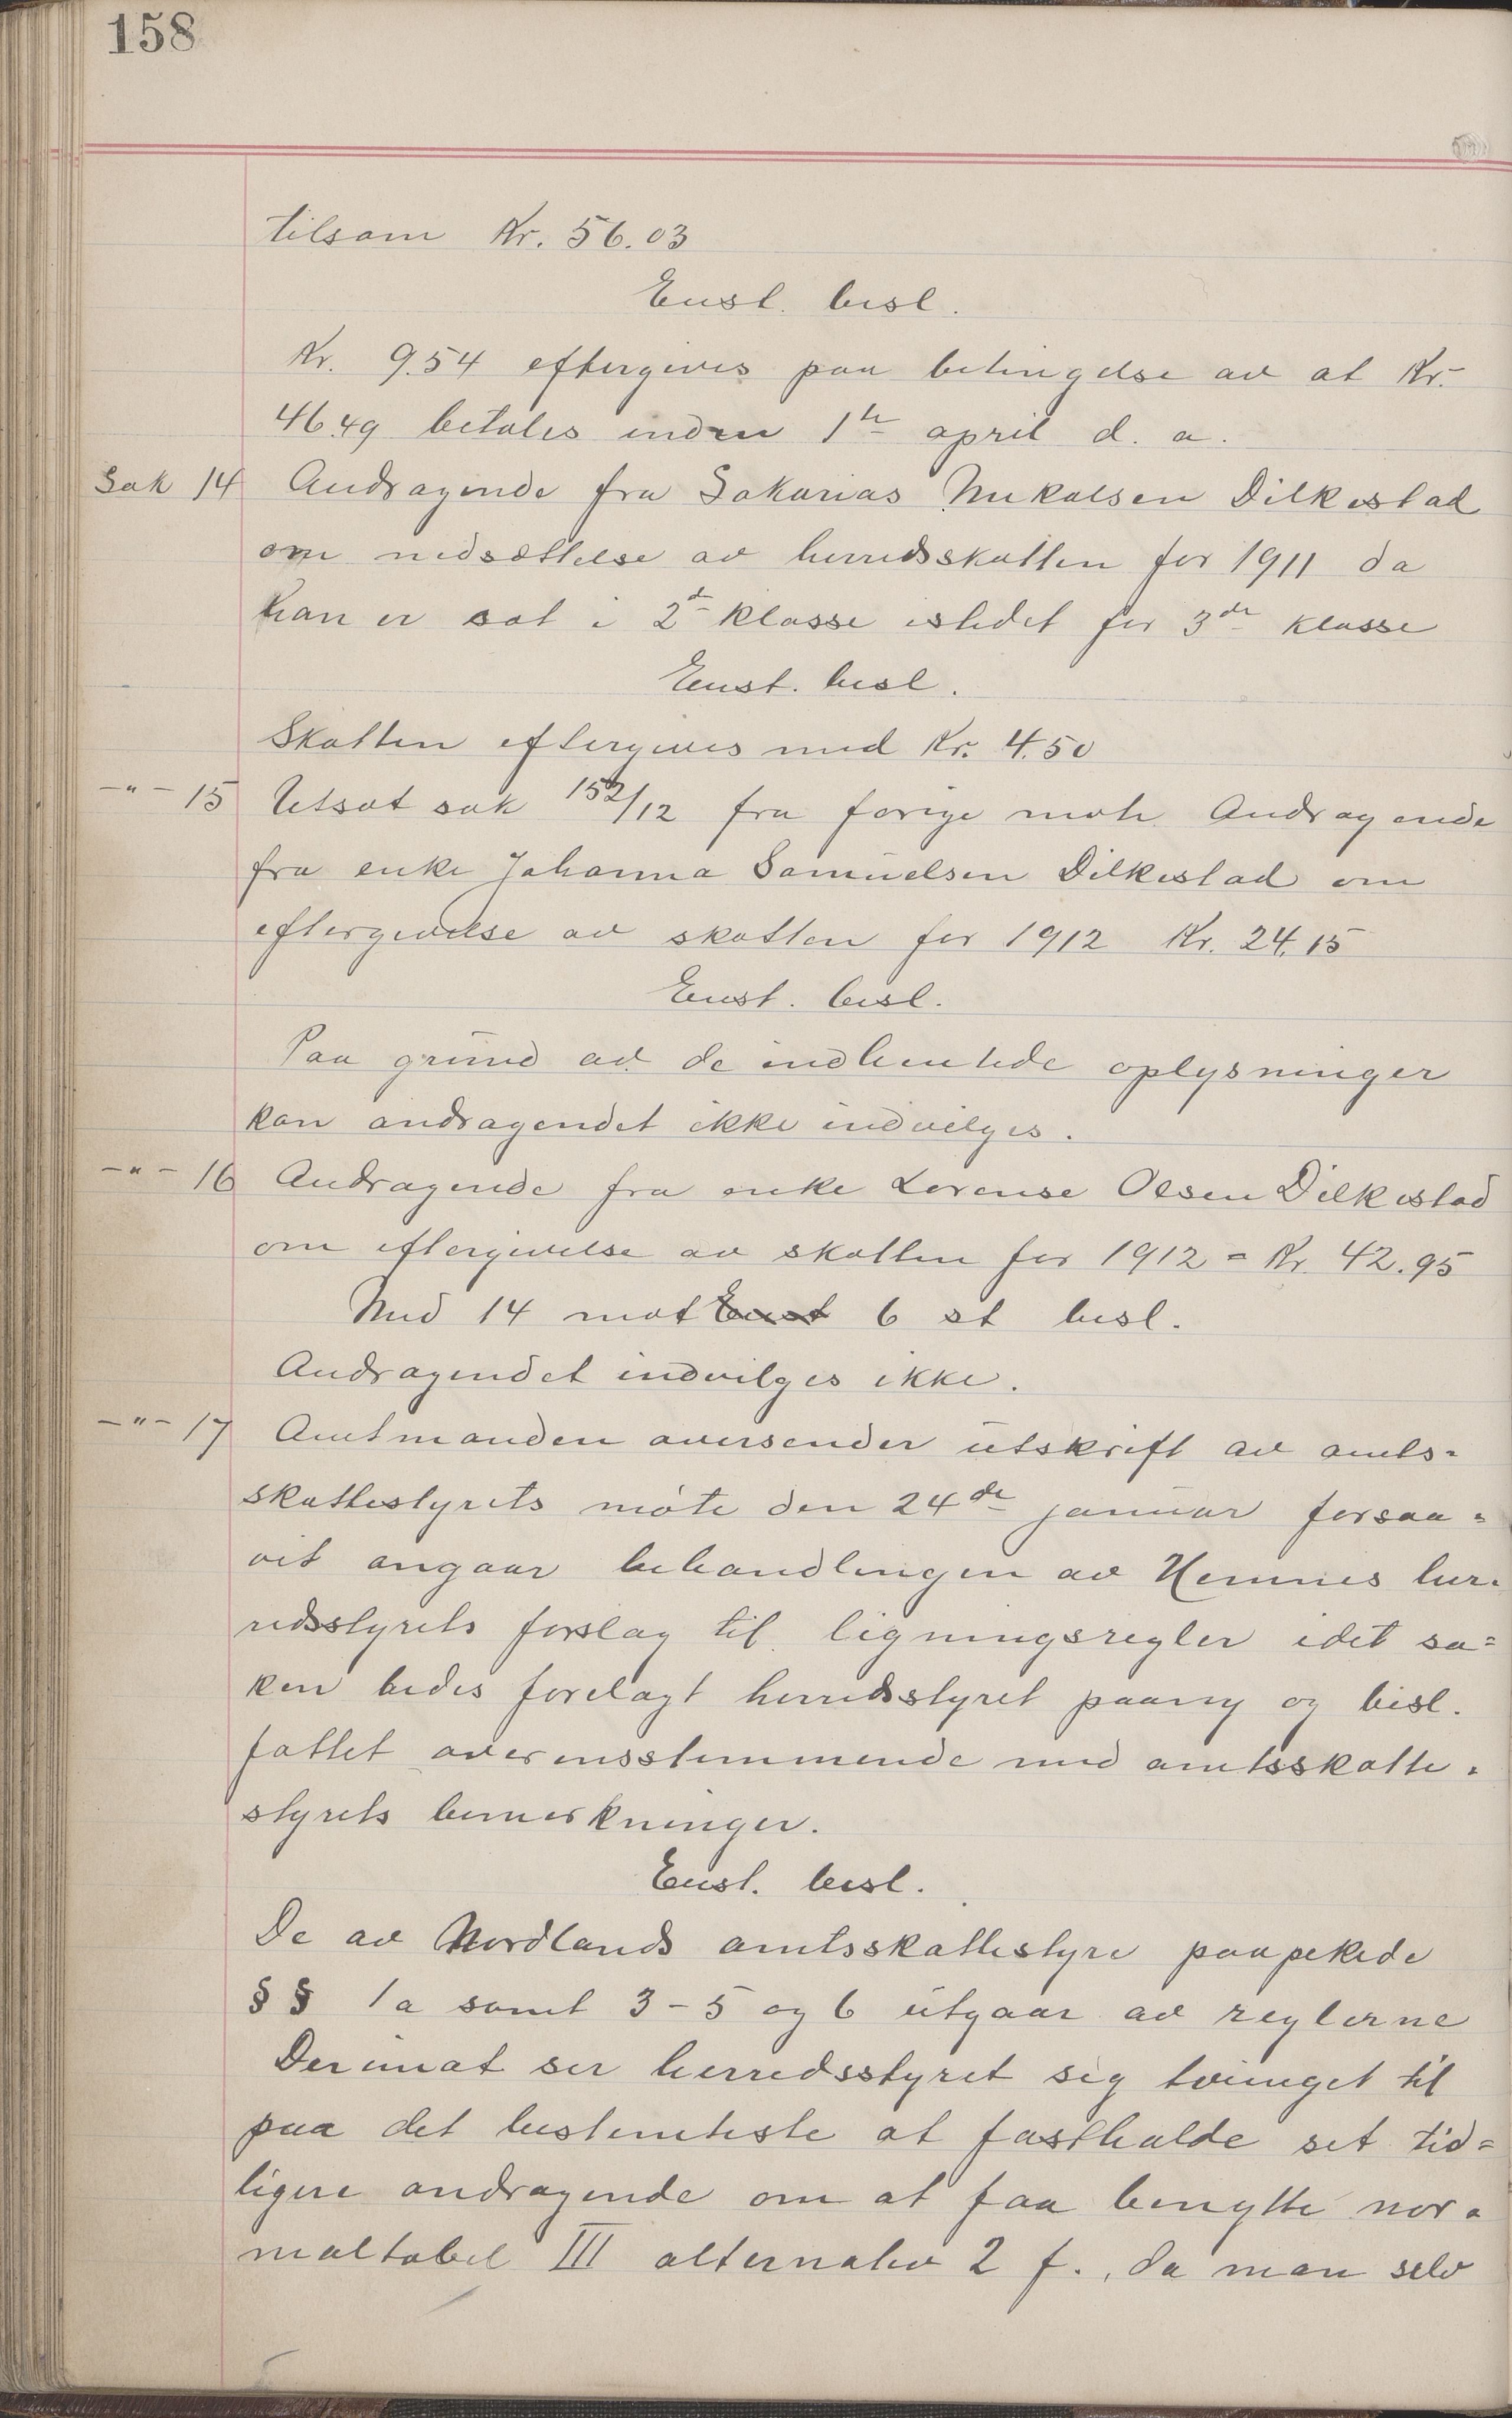 158
tilsam Kr. 56.03
Enst. besl.
Kr. 9.54 eftergives paa betingelse av at Kr.
46.49 betales inden 1ste april d. a.
Sak 14 Andragende fra Sakarias Mikalsen Dilkestad
om nedsættelse av herredsskatten for 1911 da
han er sat i 2de klasse istedet for 3die klasse
Enst. besl.
Skatten eftergives med Kr. 4.50
-"- 15 Utsat sak 152/12 fra forige møte. Andragende
fra enke Johanna Samuelsen Dilkestad om
eftergivelse av skatten for 1912 Kr. 24.15
Enst. besl.
Paa grund av de indhentede oplysninger
kan andragendet ikke indvilges.
-"- 16 Andragende fra enke Lorense Olsen Dilkestad
om eftergivelse av skatten for 1912 = Kr. 42.95
Med 14 mot Enst 6 st besl.
Andragendet indvilges ikke.
-"- 17 Amtmanden oversender utskrift av amts=
skattestyrets møte den 24de januar forsaa=
vit angaar behandlingen av Hemnes her=
redsstyrets forslag til ligningsregler idet sa=
ken bedes forelagt herredsstyret paany og besl.
fattet overensstemmende med amtsskatte=
styrets bemerkninger.
Enst. besl.
De av Nordlands amtsskattestyre paapekede
§§ 1a samt 3-5 og 6 utgaar av reglerne
Derimot ser herredsstyret sig tvunget til
paa det bestemteste at fastholde set tid=
ligere andragende om at faa benytte nor=
maltabel III alternativ 2 f., da man selv